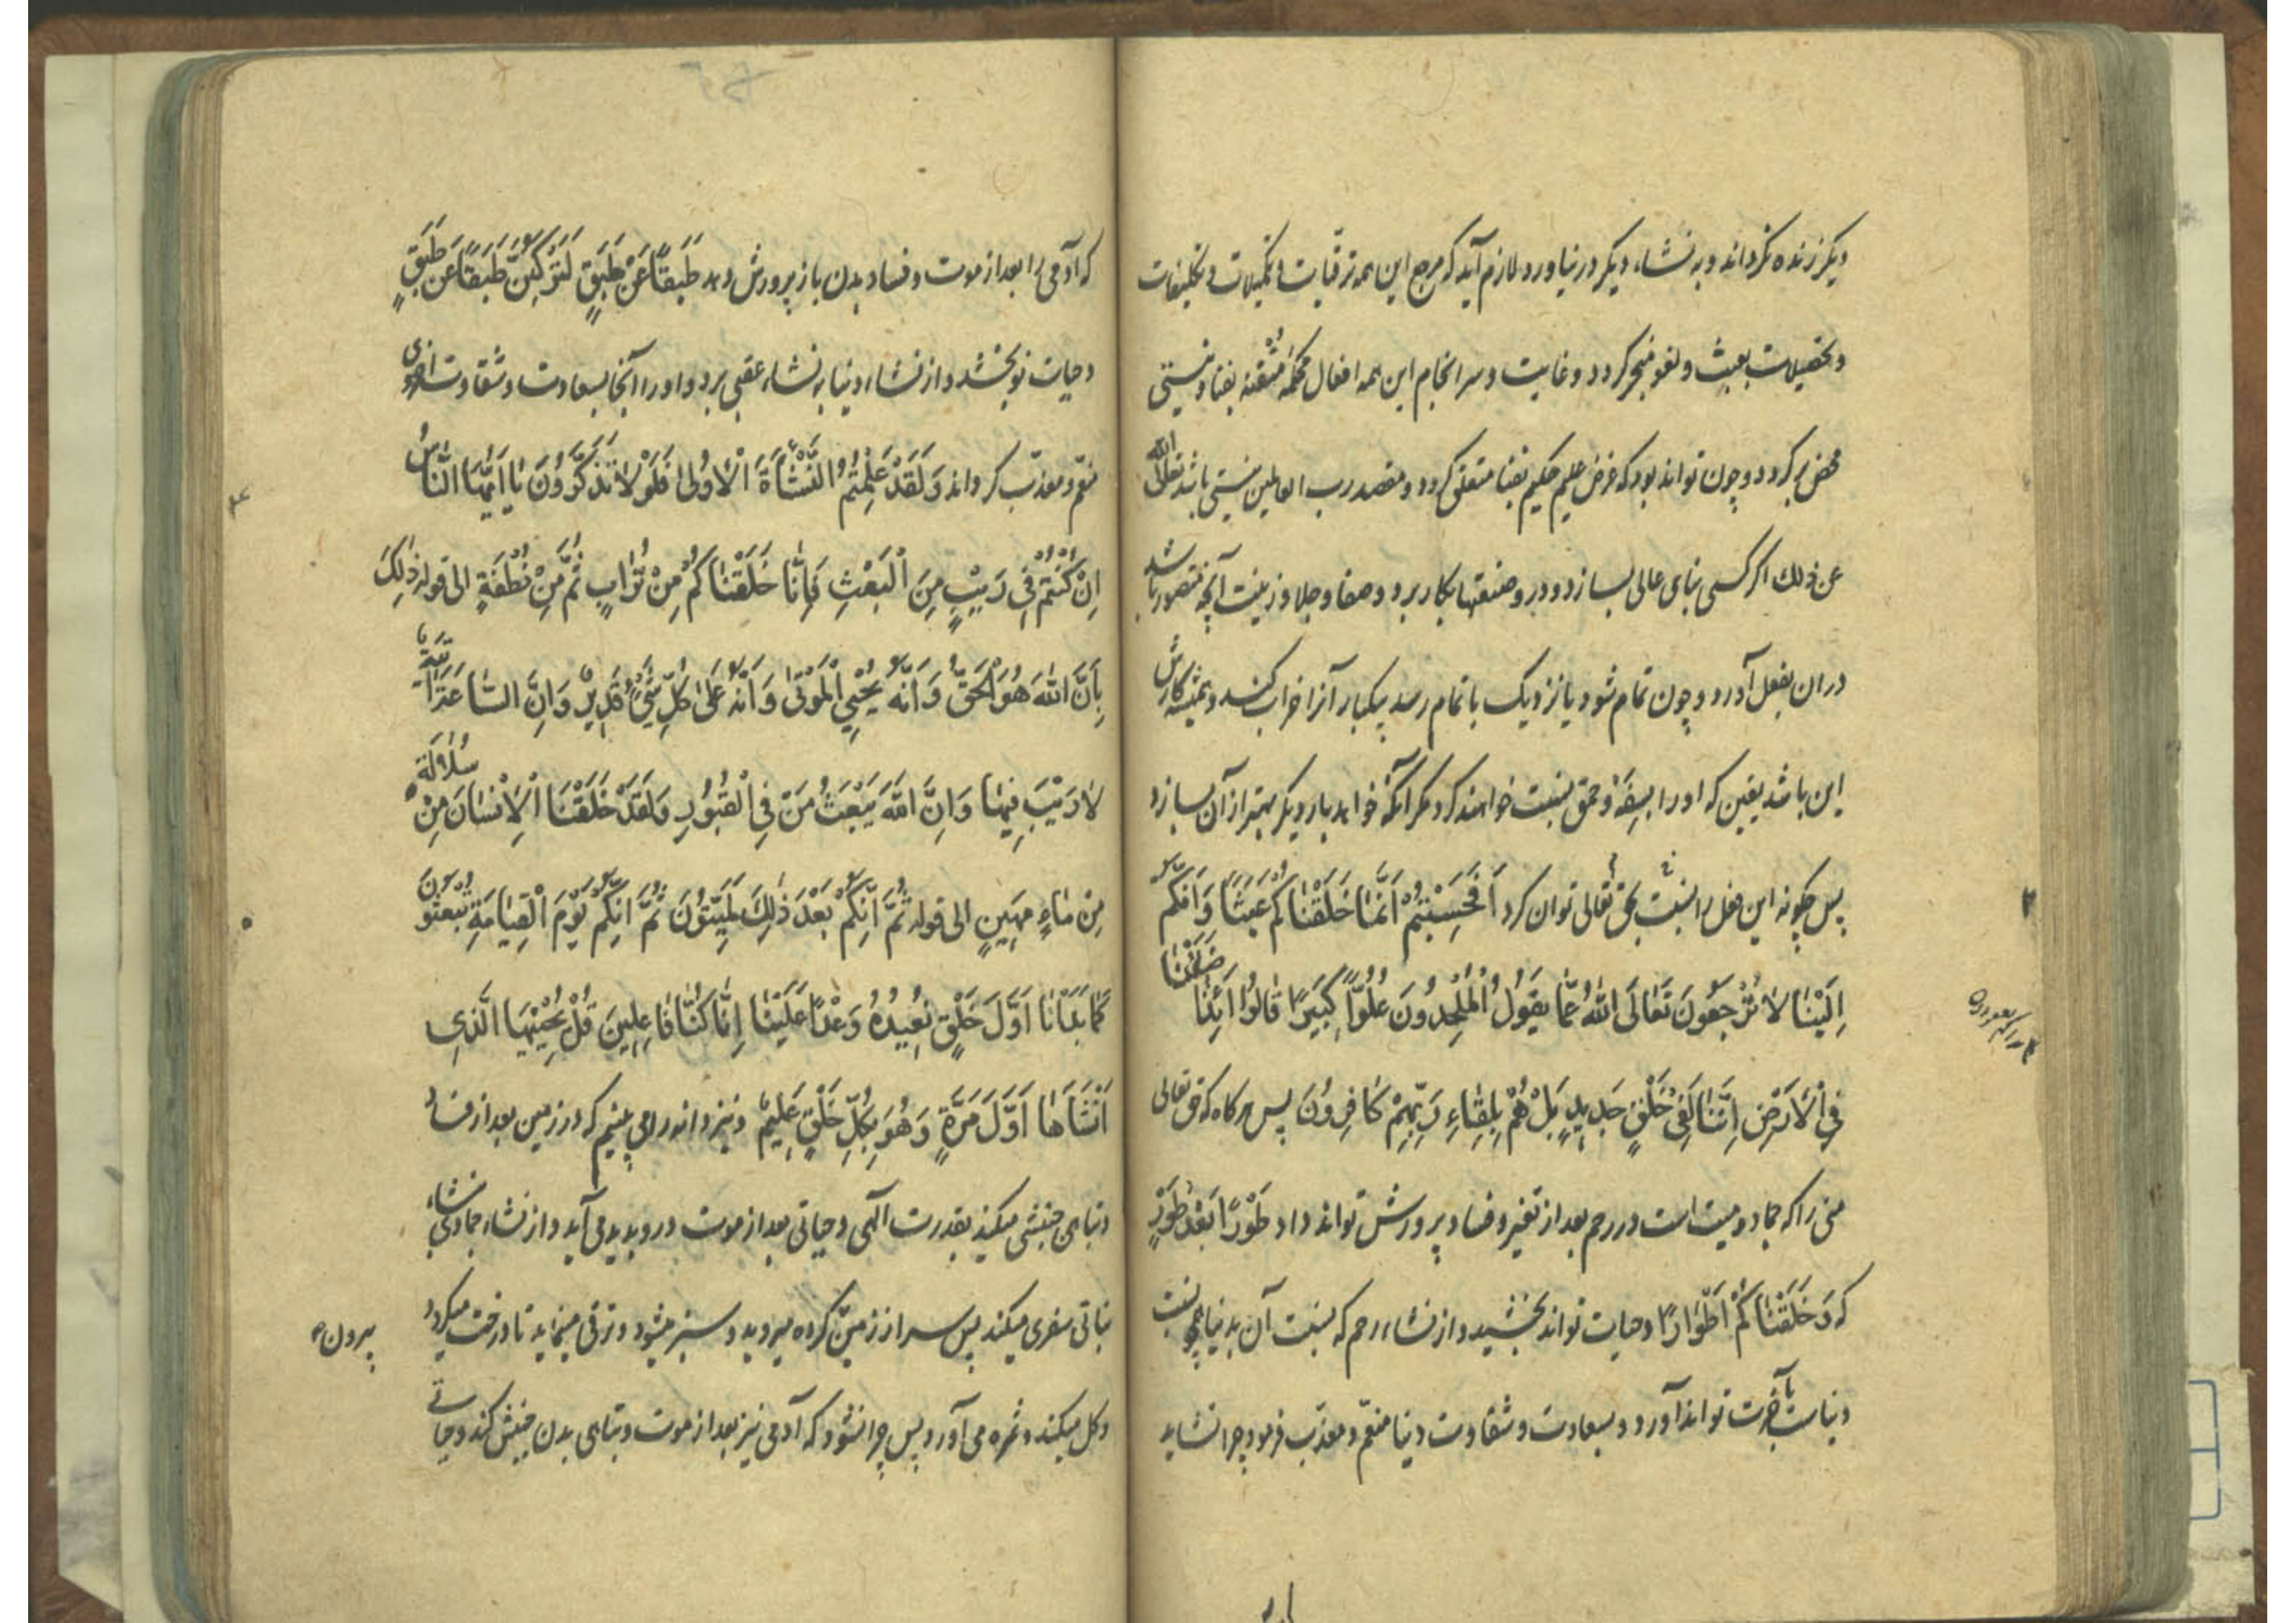 دیکر زنده نکرداند و به نشاء دیکر در نیاورد لازم آید که مرجع این همه ترقیات و تکمیلات و تکلیفات
و تحصیلات بعبث و لغو منجر کردد و غایت و سرانجام این همه افعال محکمهٔ مُتْقنه بفنا و نیستی
محض بر کردد و چون تواند بود که غرض علیم حکیم بفنا متعلق کردد و مقصد رب العالمین نیستی باشد تعالی الله
عن ذلك اکر کسی بنای عالی بسازد و درو صنعتها بکار برد و صفا و جلا و زینت آنچه متصور باشد
دران بفعل آورد و چون تمام شود یا نزدیک باتمام رسد یکبار آنرا خراب کند و همیشه کارش
این باشد یقین که او را بسفه و حمق نسبت خواهند کرد مکر آنکه خواهد بار دیکر بهتر از آن بسازد
پس چکونه این فعل را نسبت بحق تعالی توان کرد اَفَحَسِبْتُمْ اَنَّمٰا خَلَقْنٰاكُمْ عَبَثًا وَاَنَّكُمْ
اِلَيْنٰا لاٰ تُرْجَعُونَ تَعٰالَى اللّٰهُ عَمّٰا يَقُولُ الْمُلْحِدُونَ عُلُوًّا كَبِيرًا قٰالُوا اَئِذٰا ضَلَلْنٰا
فِي الْاَرْضِ اِنَّنٰا لَفِي خَلْقٍ جَدِيدٍ بَلْ هُمْ بِلِقٰاءِ رَبِّهِمْ كٰافِرُونَ پس هرکاه که حق تعالی
منی را که جماد و میت است در رحم بعد از تغیر و فساد پرورش تواند داد طَوْرًا بَعْدَ طَوْرٍ
که وَخَلَقْنٰاكُمْ اَطْوٰارًا و حیات تواند بخشید و از نشاء رحم که نسبت آن بدنیا همچو نسبت
دنیاست بآخرت تواند آورد و بسعادت و شقاوت دنیا منعّم و معذّب فرمود چرا نشاید
که آدمی را بعد از موت و فساد بدن باز پرورش دهد طَبَقًا عَنْ طَبَقٍ لَتَرْكَبُنَّ طَبَقًا عَنْ طَبَقٍ
و حیات نو بخشد و از نشاء دنیا به نشاء عقبی برد و او را آنجا بسعادت و شقاوت اخروی
منعّم و معذّب کرداند وَلَقَدْ عَلِمْتُمُ النَّشْأَةَ الْاُولىٰ فَلَوْلاٰ تَذَكَّرُونَ يٰا اَيُّهَا النّٰاسُ
اِنْ كُنْتُمْ فِي رَيْبٍ مِنَ الْبَعْثِ فَاِنّٰا خَلَقْنٰاكُمْ مِنْ تُرٰابٍ ثُمَّ مِنْ نُطْفَةٍ الی قوله ذٰلِكَ
بِاَنَّ اللّٰهَ هُوَ الْحَقُّ وَاَنَّهُ يُحْيِي الْمَوْتىٰ وَاَنَّهُ عَلىٰ كُلِّ شَيْءٍ قَدِيرٌ وَاَنَّ السّٰاعَةَ اٰتِيَةٌ
لاٰ رَيْبَ فِيهٰا وَاَنَّ اللّٰهَ يَبْعَثُ مَنْ فِي الْقُبُورِ وَلَقَدْ خَلَقْنَا الْاِنْسٰانَ مِنْ سُلاٰلَةٍ
مِنْ مٰاءٍ مَهِينٍ الی قوله ثُمَّ اِنَّكُمْ بَعْدَ ذٰلِكَ لَمَيِّتُونَ ثُمَّ اِنَّكُمْ يَوْمَ الْقِيٰامَةِ تُبْعَثُونَ
كَمٰا بَدَأْنٰا اَوَّلَ خَلْقٍ نُعِيدُهُ وَعْدًا عَلَيْنٰا اِنّٰا كُنّٰا فٰاعِلِينَ قُلْ يُحْيِيهَا الَّذِي
اَنْشَاَهٰا اَوَّلَ مَرَّةٍ وَهُوَ بِكُلِّ خَلْقٍ عَلِيمٌ و نیز دانه را می بینیم که در زمین بعد از فساد
و تباهی جنبشی میکند بقدرت الهی و حیاتی بعد از موت درو پدید می آید و از نشاء جمادی بنشاء
نباتی سفری میکند پس سر از زمین کرده میروید و سبز میشود و ترقی مینماید تا درخت میکردد
بیرون
و کل میکند و ثمره می آورد پس چرا نشود که آدمی نیز بعد از موت و تباهی بدن جنبش کند و حیاتی